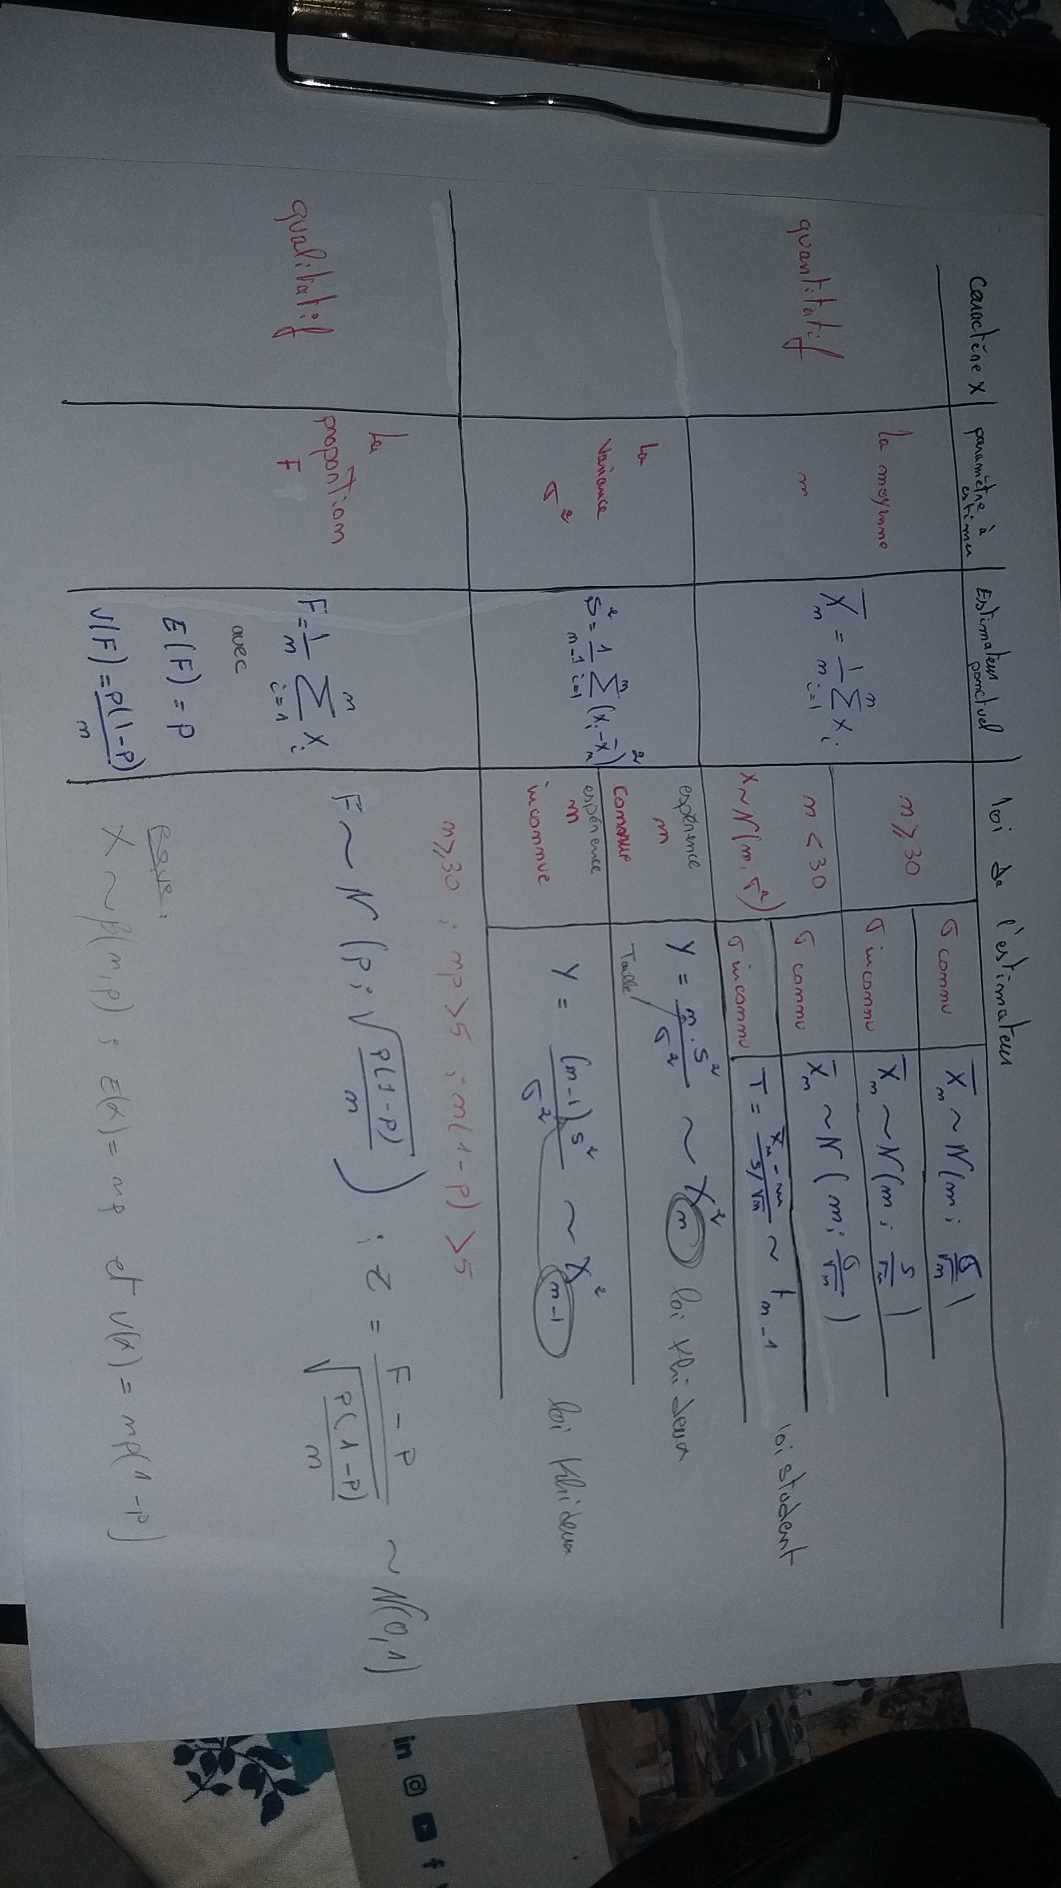 Caractère X | paramètre à estimer | Estimateur ponctuel | loi de l'estimateur
quantitatif
La moyenne
m
X̄n = 1/n Σ_{i=1}^{n} Xi
n ⩾ 30
σ connu
X̄n ~ N(m ; σ/√n)
σ inconnu
X̄n ~ N(m ; s/√n)
n < 30
X ~ N(m, σ²)
σ connu
X̄n ~ N(m ; σ/√n)
σ inconnu
T = (X̄n - m)/(s/√n) ~ t_{n-1}
loi student
La
variance
σ²
S² = 1/(n-1) Σ_{i=1}^{n} (Xi - X̄n)²
espérence
m
connue
Y = n.S²/σ² ~ X²_n loi Khi deux
Taille
espérence
m
inconnue
Y = (n-1)S²/σ² ~ X²_{n-1} loi Khi deux
qualitatif
La
proportion
F
F = 1/n Σ_{i=1}^{n} Xi
avec
E(F) = P
V(F) = P(1-P)/n
n ⩾ 30 ; np > 5 ; n(1-p) > 5
F ~ N(p ; √(P(1-P)/n)) ; Z = (F - P)/√(P(1-P)/n) ~ N(0,1)
X ~ β(n,p) ; E(X) = np et V(X) = np(1-p)
in
f